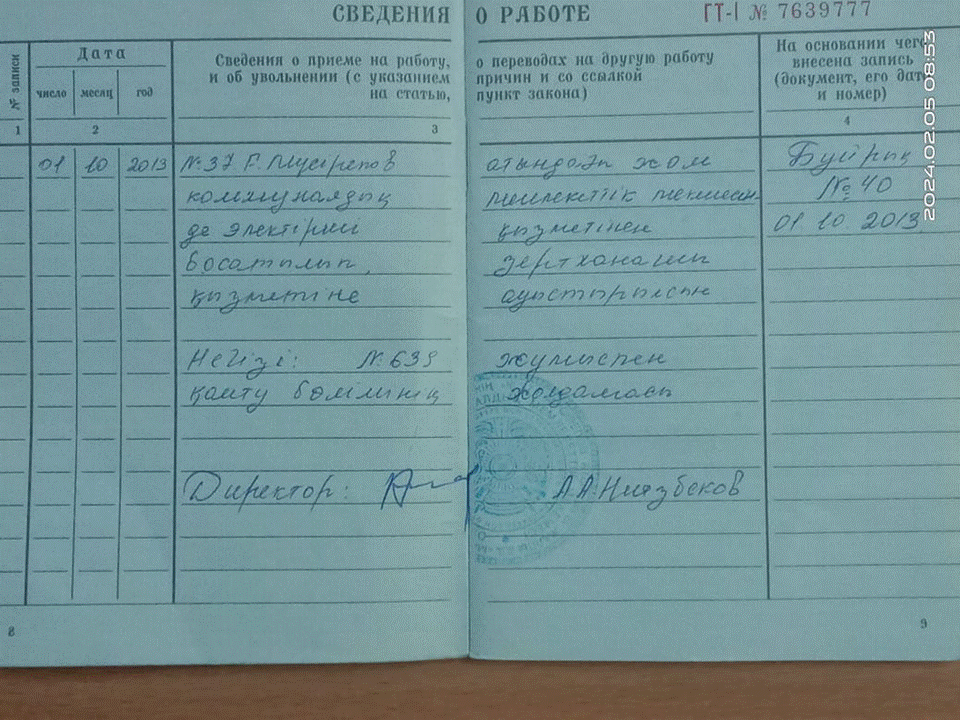 СВЕДЕНИЯ О РАБОТЕ ГТ-I № 7639777
№ записи
Дата
число месяц год
Сведения о приеме на работу,
и об увольнении (с указанием
на статью,
о переводах на другую работу
причин и со ссылкой
пункт закона)
На основании чего
внесена запись
(документ, его дата
и номер)
1 2 3 4
01 10 2013 № 37 Ғ. Мүсірепов атындағы ЖОМ Бұйрық
коммуналдық мемлекеттік № 40
де электірші қызметінен 01 10 2013
босатылып, зертханашы
қызметіне ауыстырылсын
Негізі: № 639 жұмыспен
қамту бөлімінің жолдамасы
Директор: А А Ниязбеков
8 9
2024.02.05 08:53